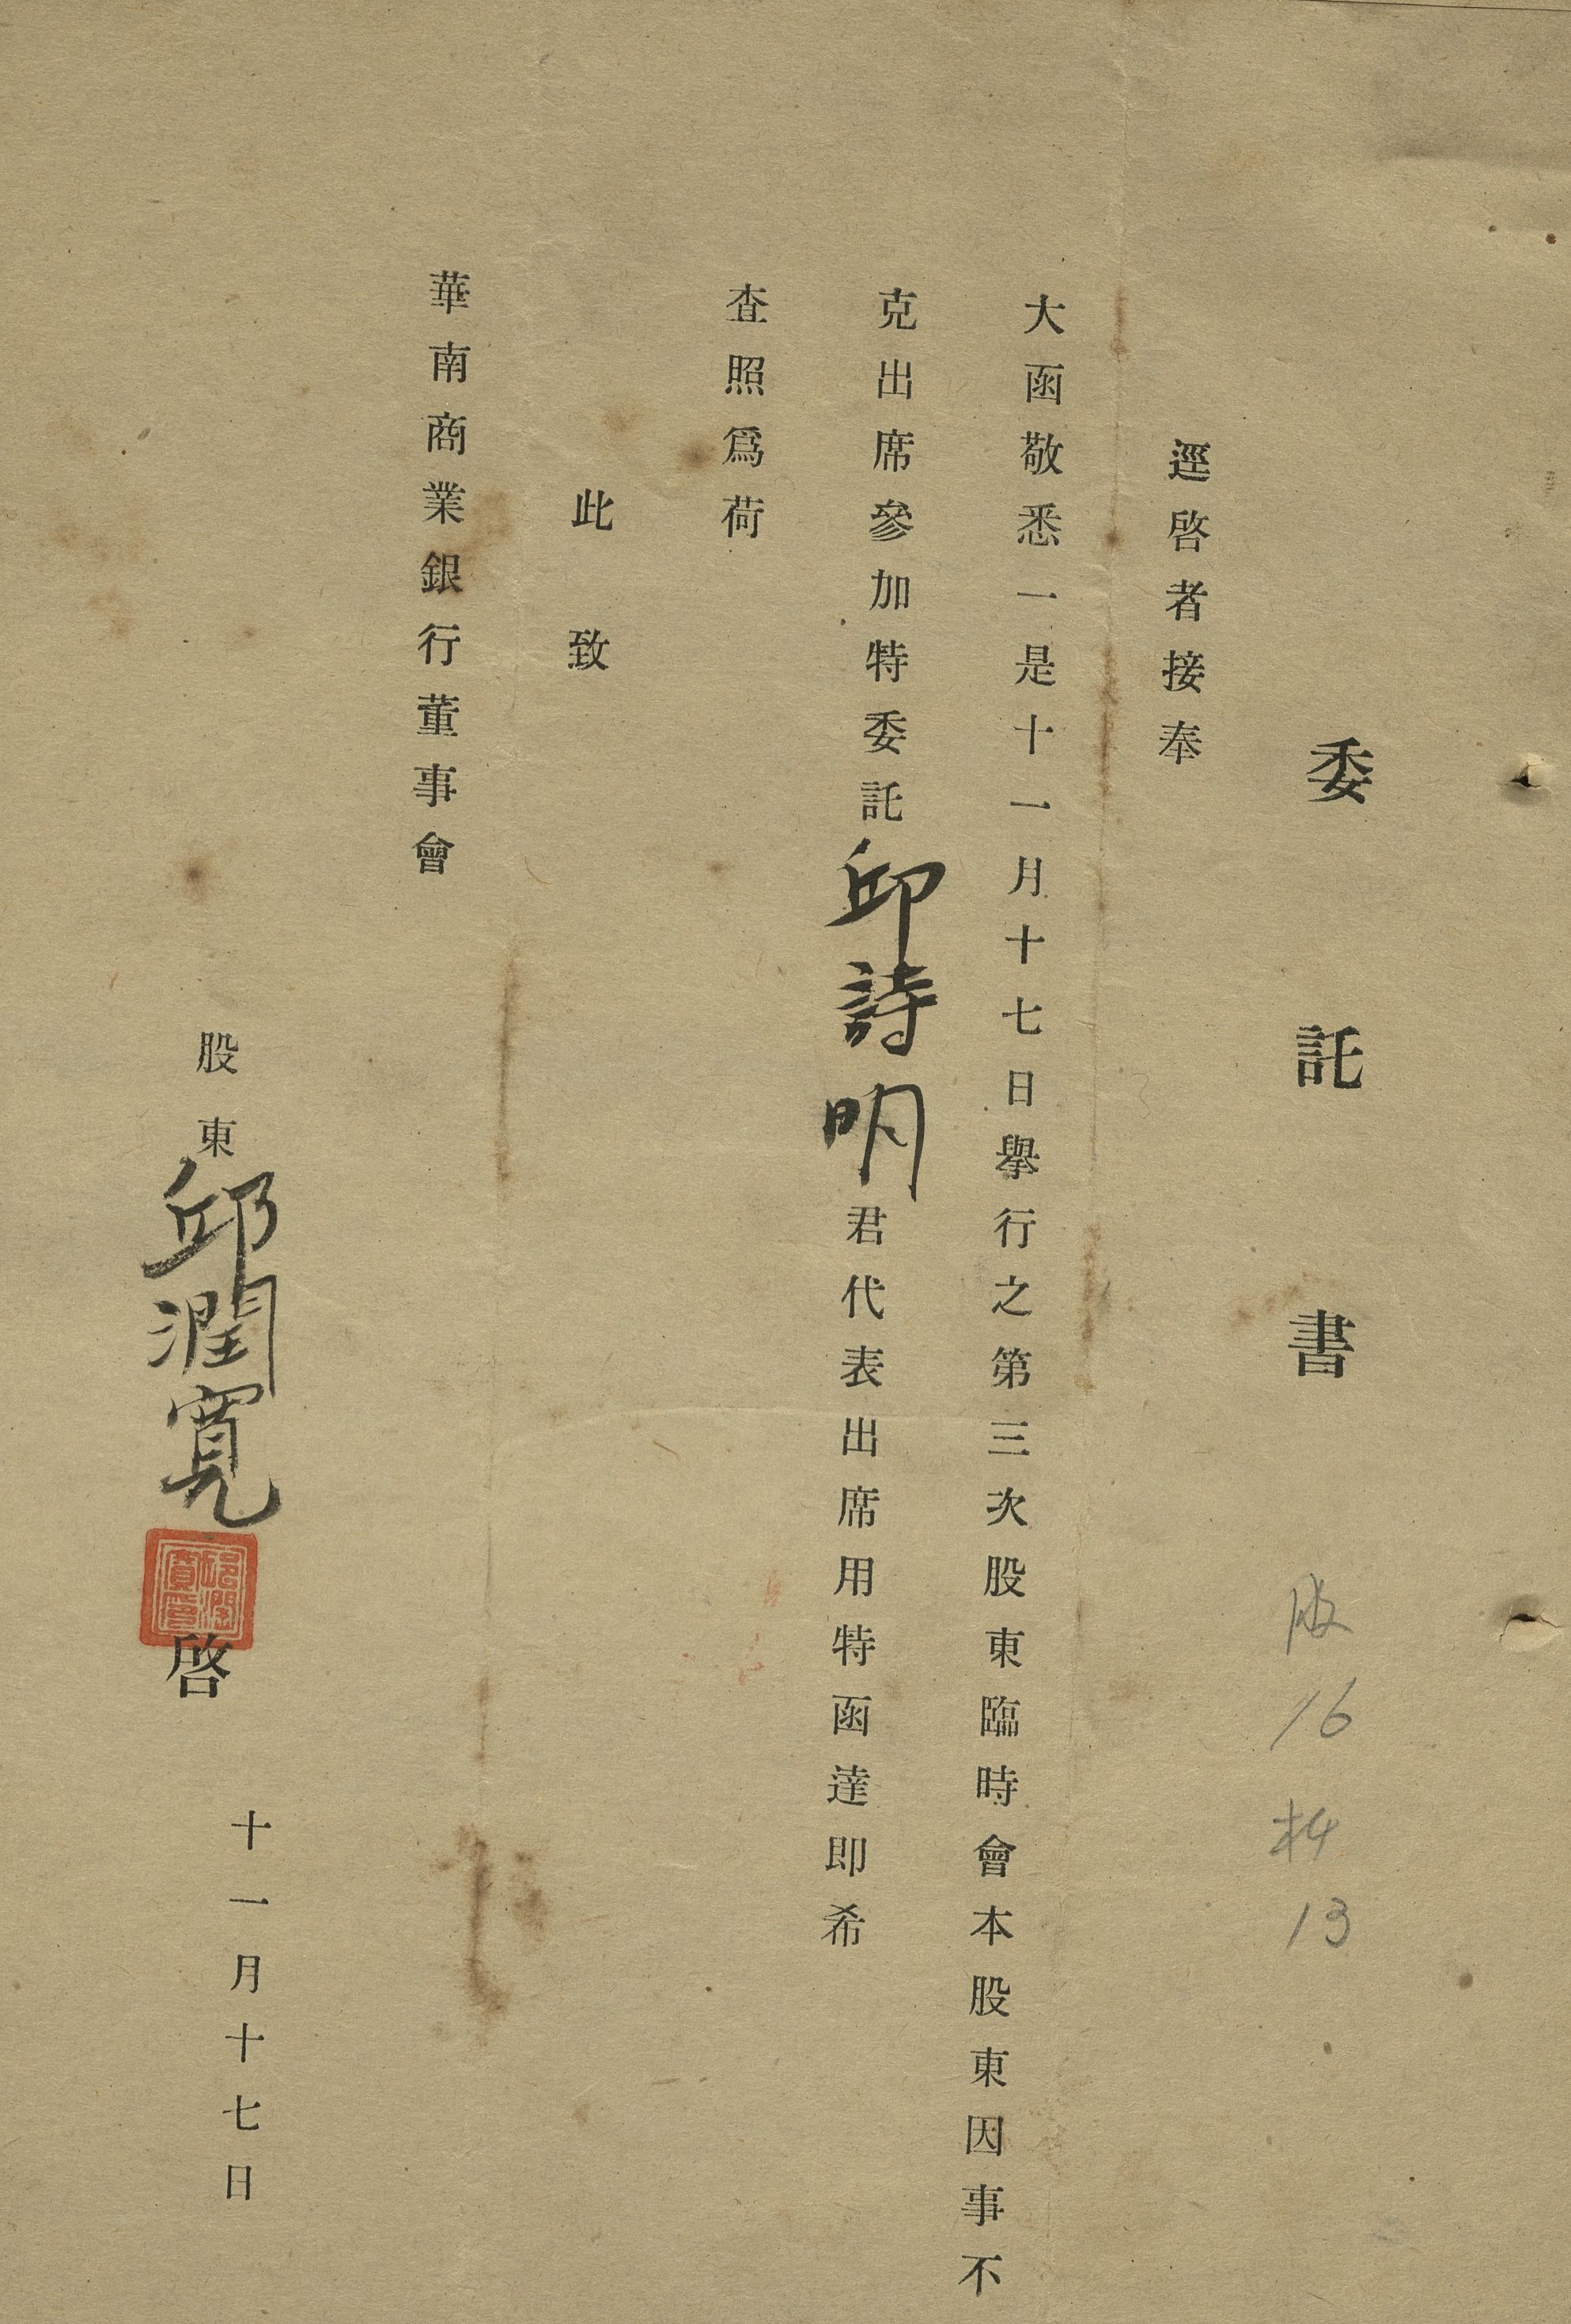 委託書
股16 権13
逕啓者接奉
大函敬悉一是十一月十七日舉行之第三次股東臨時會本股東因事不
克出席參加特委託邱詩明君代表出席用特函達即希
査照爲荷
此致
華南商業銀行董事會
股東邱潤寬啓
邱潤寬印
十一月十七日